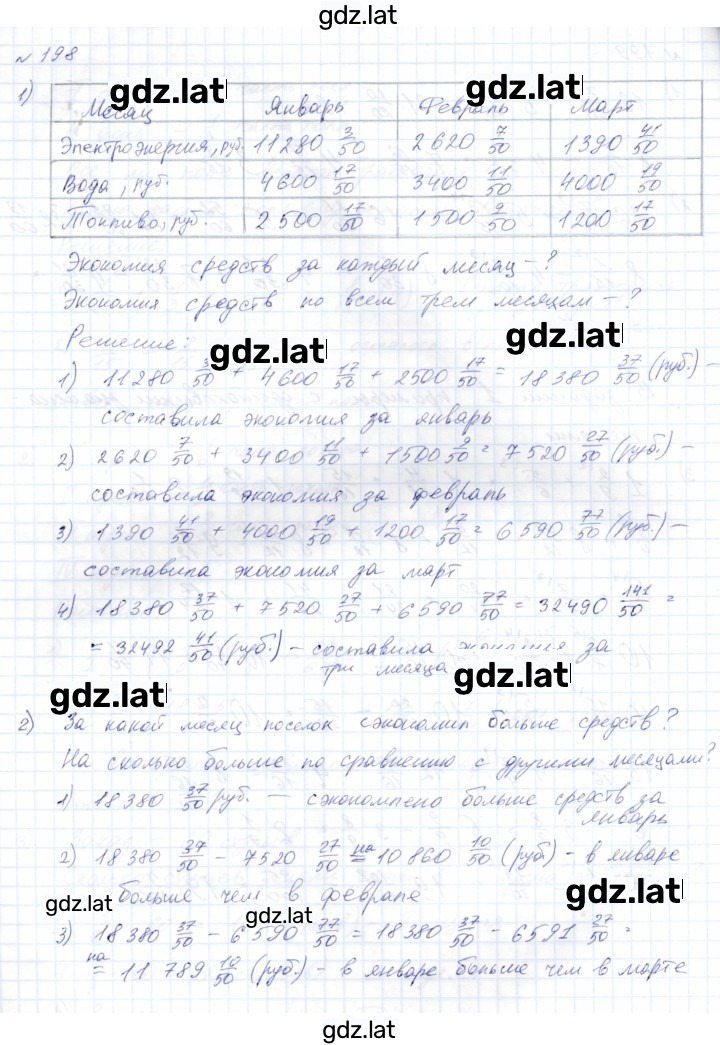 gdz.lat
№ 198
gdz.lat gdz.lat
1) Месяц Январь Февраль Март
Электроэнергия, руб. 11280 3/50 2620 7/50 1390 41/50
Вода, руб. 4600 17/50 3400 11/50 4000 19/50
Топливо, руб. 2500 17/50 1500 9/50 1200 17/50
Экономия средств за каждый месяц – ?
Экономия средств по всем трем месяцам – ?
Решение:
gdz.lat gdz.lat
1) 11280 3/50 + 4600 17/50 + 2500 17/50 = 18380 37/50 (руб.) –
составила экономия за январь
2) 2620 7/50 + 3400 11/50 + 1500 9/50 = 7520 27/50 (руб.) –
составила экономия за февраль
3) 1390 41/50 + 4000 19/50 + 1200 17/50 = 6590 77/50 (руб.) –
составила экономия за март
4) 18380 37/50 + 7520 27/50 + 6590 77/50 = 32490 141/50 =
= 32492 41/50 (руб.) – составила экономия за
три месяца
gdz.lat
gdz.lat
2) За какой месяц поселок сэкономил больше средств?
На сколько больше по сравнению с другими месяцами?
1) 18380 37/50 руб. — сэкономлено больше средств за
январь
2) 18380 37/50 – 7520 27/50 = на 10860 10/50 (руб.) – в январе
больше чем в феврале
gdz.lat gdz.lat gdz.lat
3) 18380 37/50 – 6590 77/50 = 18380 37/50 – 6591 27/50 =
на = 11789 10/50 (руб.) – в январе больше чем в марте
gdz.lat